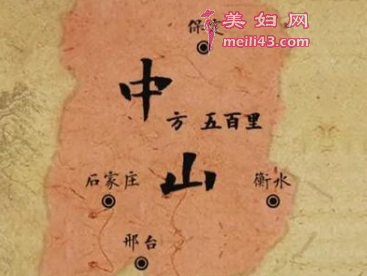 美妇网
meili43.com
保定
中
方 五百里
山
石家庄
衡水
邢台